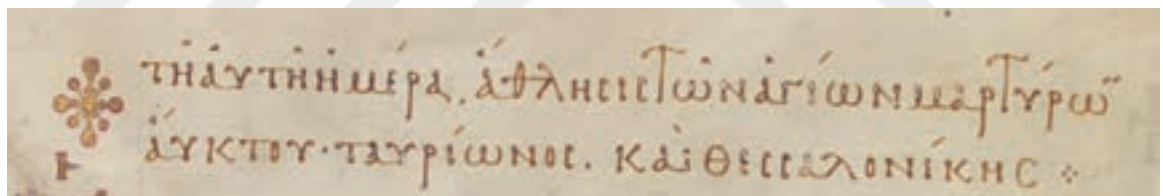 τῆ ἀυτῆ ἡμέρα. ἄθλησις τῶν ἁγίων μαρτύρω̈
ἀύκτου· ταυρίωνος. καὶ θεσσαλονίκης